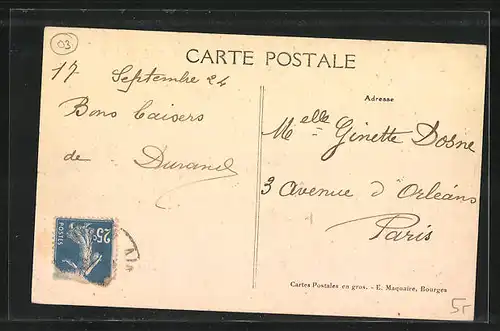 03
CARTE POSTALE
17 Septembre 24
Bons baisers
de Durand
Adresse
Melle Ginette Dosne
3 Avenue d'Orléans
Paris
25c
POSTES
Cartes Postales en gros. - E. Maquaire, Bourges
5r